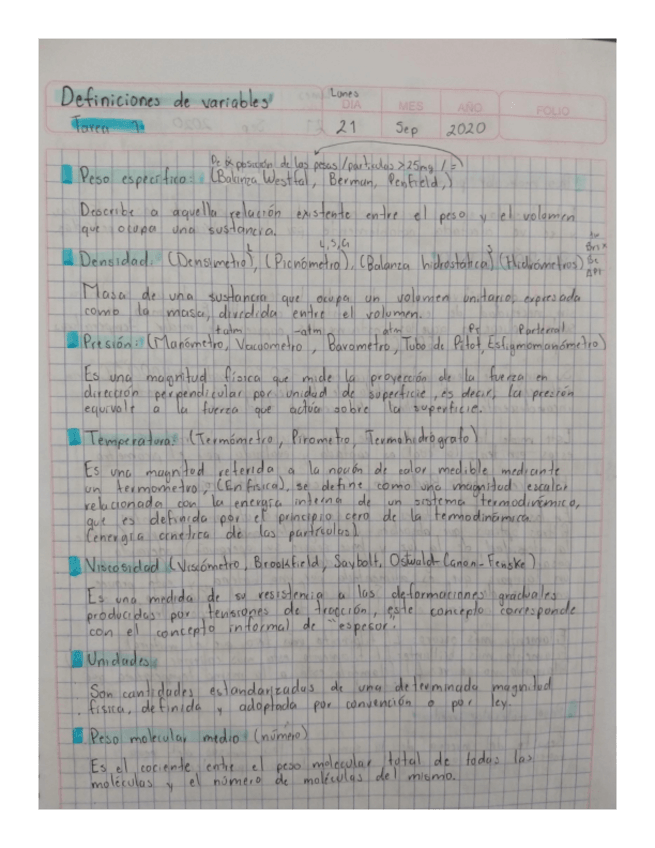 Definiciones de variables
Lunes
DIA MES AÑO FOLIO
Tarea 1
21 Sep 2020
De posición de las pesas / partículas >25mg / =
Peso específico: (Balanza Westfal, Berman, Penfield,)
Describe a aquella relación existente entre el peso y el volumen
que ocupa una sustancia.
L L,S,G S
Densidad. (Densímetro), (Picnómetro), (Balanza hidrostática) (Hidrómetros)
Masa de una sustancia que ocupa un volumen unitario, expresada
como la masa, dividida entre el volumen.
+atm -atm atm
Presión: (Manómetro, Vacuometro, Barometro, Tubo de Pitot, Esfigmomanómetro)
Es una magnitud física que mide la proyección de la fuerza en
dirección perpendicular por unidad de superficie, es decir, la presión
equivale a la fuerza que actúa sobre la superficie.
Temperatura: (Termómetro, Pirometro, Termohidrógrafo)
Es una magnitud referida a la noción de calor medible mediante
un termometro, (En física), se define como una magnitud escalar
relacionada con la energía interna de un sistema termodinámico,
que es definida por el principio cero de la termodinámica
(energía cinética de las partículas)
Viscosidad (Viscómetro, Brookfield, Saybolt, Ostwald-Canon-Fenske)
Es una medida de su resistencia a las deformaciones graduales
producidas por tensiones de tracción, este concepto corresponde
con el concepto informal de "espesor".
Unidades.
Son cantidades estandarizadas de una determinada magnitud
física, definida y adoptada por convención o por ley.
Peso molecular medio (número)
Es el cociente entre el peso molecular total de todas las
moléculas y el número de moléculas del mismo.